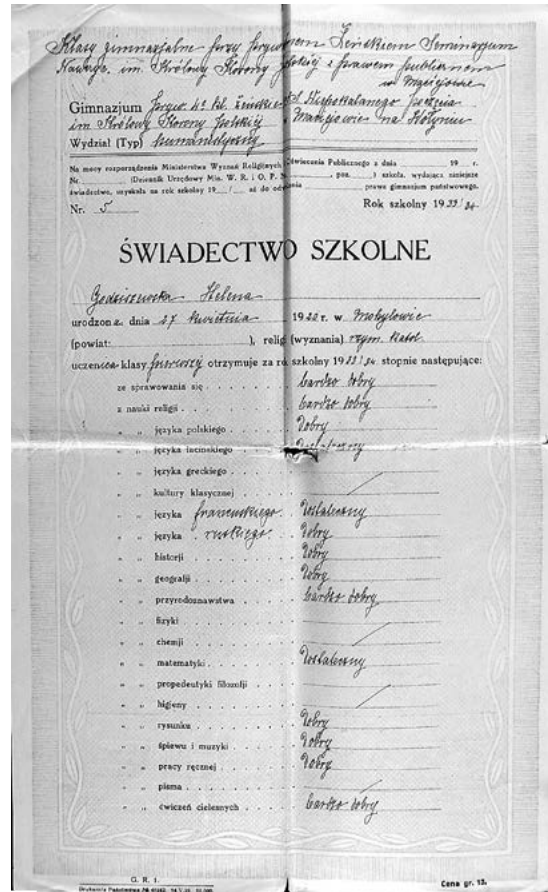 Klasy gimnazjalne przy prywatnem Żeńskiem Seminarjum
Naucz. im. Królowej Korony polskiej z prawem publiczności
w Maciejowie
Gimnazjum pryw. żeńskie Niepokalanego poczęcia
im. Królowej Korony polskiej Maciejowie na Wołyniu
Wydział (Typ) humanistyczny
Na mocy rozporządzenia Ministerstwa Wyznań Religijnych Oświecenia Publicznego z dnia 19 r.
Nr. (Dziennik Urzędowy Min. W. R. i O. P. N , poz. ) szkoła, wydająca niniejsze
świadectwo, uzyskała na rok szkolny 19 / aż do prawa gimnazjum państwowego.
Nr. 5 Rok szkolny 1933/34
ŚWIADECTWO SZKOLNE
Godziszewska Helena
urodzona dnia 27 kwietnia 1920 r. w Mohylowie
(powiat: ), religi (wyznania) rzym. katol.
uczenica klasy pierwszej otrzymuje za ro szkolny 1933/34 stopnie następujące:
ze sprawowania się bardzo dobry
z nauki religji bardzo dobry
" " języka polskiego dobry
" " języka łacińskiego dostateczny
" " języka greckiego
" " kultury klasycznej
" " języka francuskiego dostateczny
" " języka ruskiego dobry
" " historji dobry
" " geografji dobry
" " przyrodoznawstwa bardzo dobry
" " fizyki
" " chemji
" " matematyki dostateczny
" " propedeutyki filozofji
" " higjeny
" " rysunku dobry
" " śpiewu i muzyki dobry
" " pracy ręcznej dobry
" " pisma
" " ćwiczeń cielesnych bardzo dobry
G. R. 1.
Drukarnia Państwowa
Cena gr. 13.